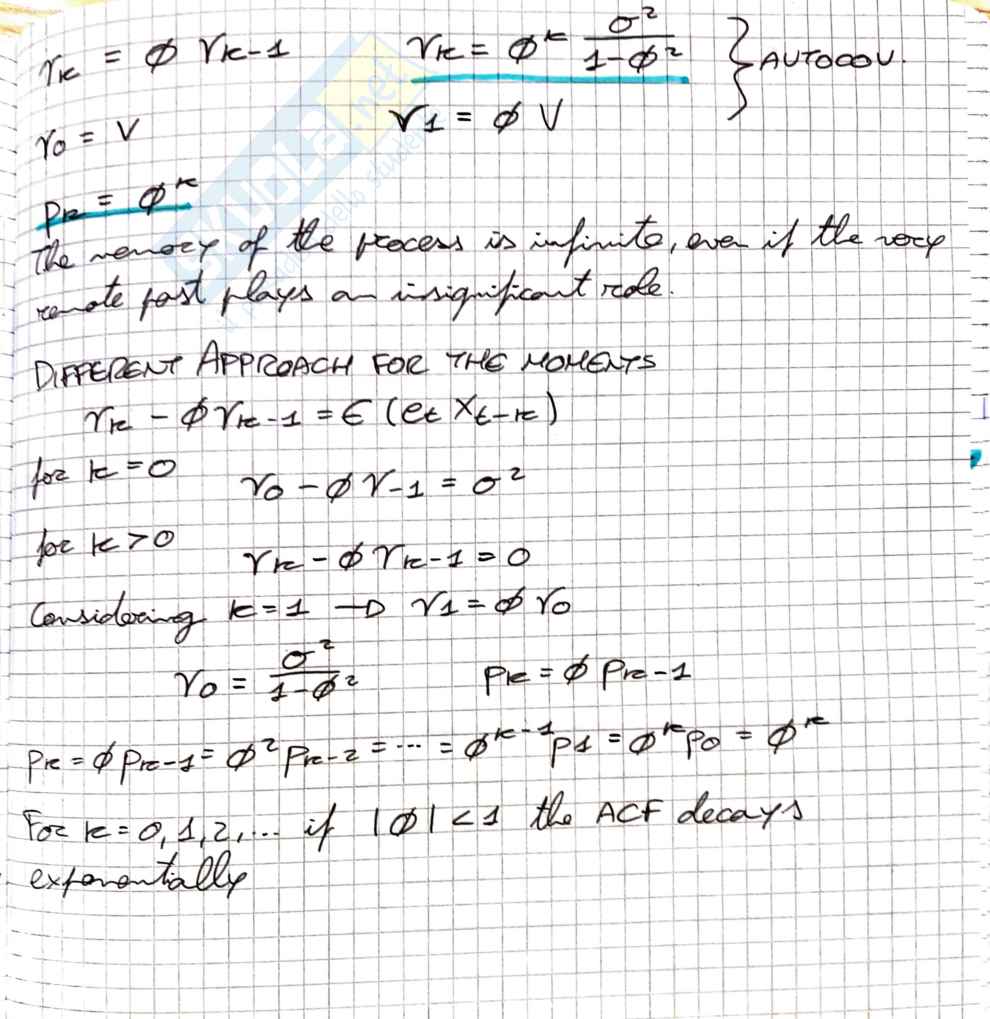 γk = ϕ γk-1   γk = ϕ^k σ²/(1-ϕ²)   } AUTOCOV.
γ0 = V   γ1 = ϕ V
ρk = ϕ^k
The memory of the process is infinite, even if the very
remote past plays an insignificant role.
DIFFERENT APPROACH FOR THE MOMENTS
γk - ϕ γk-1 = E (et Xt-k)
for k = 0   γ0 - ϕ γ-1 = σ²
for k > 0   γk - ϕ γk-1 = 0
Considering k = 1 → γ1 = ϕ γ0
γ0 = σ²/(1-ϕ²)   ρk = ϕ ρk-1
ρk = ϕ ρk-1 = ϕ² ρk-2 = ... = ϕ^k-1 ρ1 = ϕ^k ρ0 = ϕ^k
For k = 0, 1, 2, ... if |ϕ| < 1 the ACF decays
exponentially
SKUOLA.net